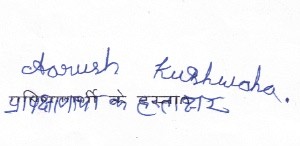 Aarush Kushwaha.
प्रशिक्षणार्थी के हस्ताक्षर